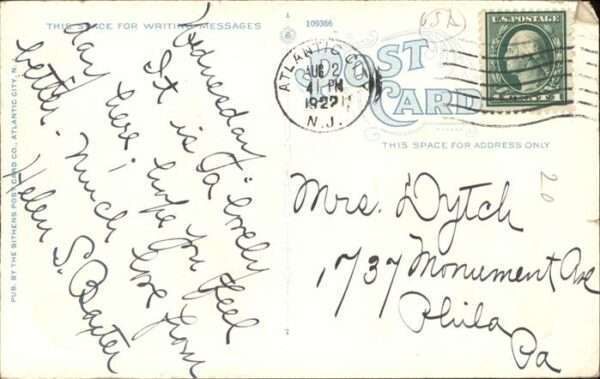 THIS SPACE FOR WRITING MESSAGES
109366
Wednesday
It is a lovely
day here, i hope you feel
better. Much love from
Helen S. Baxter
PUB. BY THE SITHENS POST CARD CO., ATLANTIC CITY, N.J.
POST
CARD
THIS SPACE FOR ADDRESS ONLY
ATLANTIC CITY
AUG 2
4 PM
1922
N.J.
U.S. POSTAGE
Mrs. Dytch
1737 Monument Ave
Phila
Pa
20